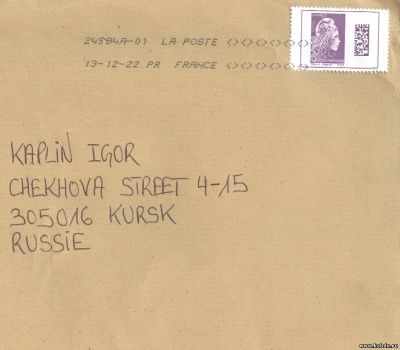 24584A-01 LA POSTE
13-12-22 PR FRANCE
KAPLIN IGOR
CHEKHOVA STREET 4-15
305016 KURSK
RUSSIE